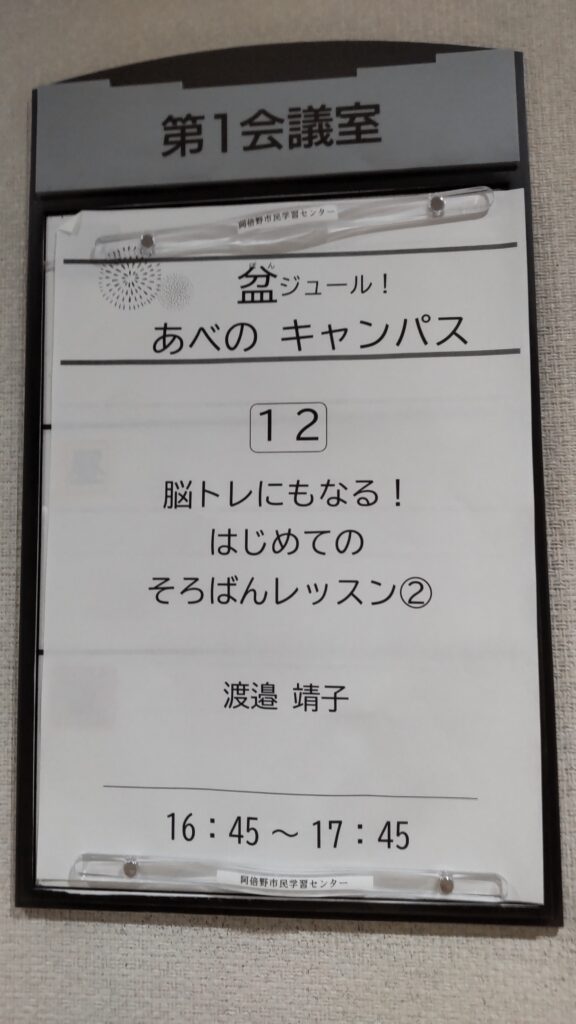 第1会議室
阿倍野市民学習センター
ぼん
盆ジュール！
あべの キャンパス
12
脳トレにもなる！
はじめての
そろばんレッスン②
渡邉 靖子
16：45～17：45
阿倍野市民学習センター